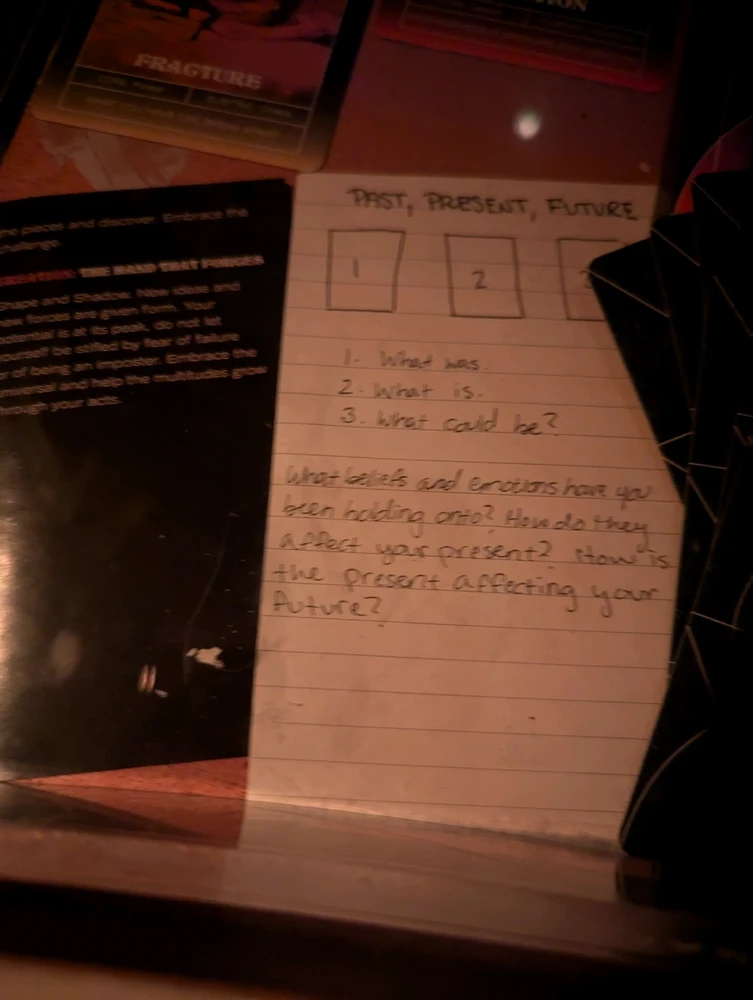 FRACTURE
PAST, PRESENT, FUTURE
1
2
3
1. What was.
2. What is.
3. What could be?
What beliefs and emotions have you
been holding onto? How do they
affect your present? How is
the present affecting your
future?
pieces and discover. Embrace the
challenge.
THE HAND THAT FORGES
Shape and Shadow. New ideas and
new forces are given form. Your
potential is at its peak, do not let
yourself be stifled by fear of failure
or of being an imposter. Embrace the
and help the multitudes grow
through your acts.